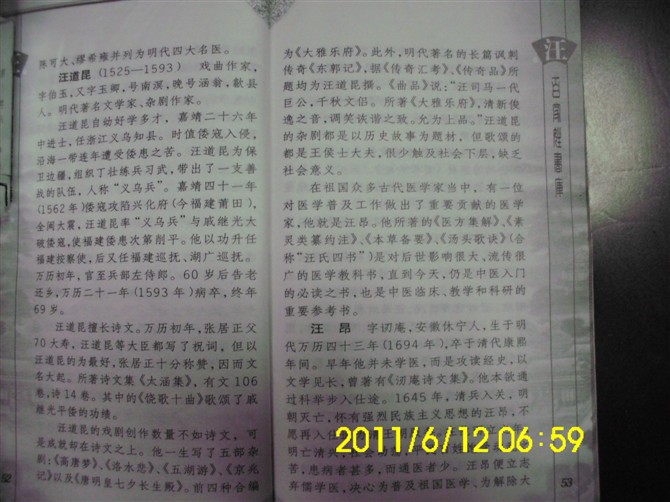 陈司大、缪希雍并列为明代四大名医。
汪道昆(1525—1593) 戏曲作家,
字伯玉,又字玉卿,号南溟,晚号涵翁,歙县
人。明代著名文学家、杂剧作家。
汪道昆自幼好学多才,嘉靖二十六年
中进士,任浙江义乌知县。时值倭寇入侵,
沿海一带连年遭受倭患之苦。汪道昆为保
卫边疆,组织丁壮练兵习武,带出了一支善
战的队伍,人称“义乌兵”。嘉靖四十一年
(1562年)倭寇攻陷兴化府(今福建莆田),
全闽大震,汪道昆率“义乌兵”与戚继光大
破倭寇,使福建倭患次第削平。他以功升任
福建按察使,后又任福建巡抚、湖广巡抚。
万历初年,官至兵部左侍郎。60岁后告老
还乡,万历二十一年(1593年)病卒,终年
69岁。
汪道昆擅长诗文。万历初年,张居正父
70大寿,汪道昆等大臣都写了祝词,但以
汪道昆的为最好,张居正十分称赞,因而文
名大起。所著诗文集《太涵集》,有文106
卷,诗14卷。其中的《饶歌十曲》歌颂了戚
继光平倭的功绩。
汪道昆的戏剧创作数量不如诗文,可
是成就却在诗文之上。他一生写了五部杂
剧:《高唐梦》、《洛水悲》、《五湖游》、《京兆
记》以及《唐明皇七夕长生殿》。前四种合编
52
为《大雅乐府》。此外,明代著名的长篇讽刺
传奇《东郭记》,据《传奇汇考》、《传奇品》所
题均为汪道昆撰。《曲品》说:“汪司马一代
巨公,千秋文侣。所著《大雅乐府》,清新俊
逸之音,调笑诙谐之致。允为上品。”汪道昆
的杂剧都是以历史故事为题材,但歌颂的
都是王侯士大夫,很少触及社会下层,缺乏
社会意义。
在祖国众多古代医学家当中,有一位
对医学普及工作做出了重要贡献的医学
家,他就是汪昂。他所著的《医方集解》、《素
灵类纂约注》、《本草备要》、《汤头歌诀》(合
称“汪氏四书”)是对后世影响很大、流传很
广的医学教科书,直到今天,仍是中医入门
的必读之书,也是中医临床、教学和科研的
重要参考书。
汪 昂 字讱庵,安徽休宁人,生于明
代万历四十三年(1694年),卒于清代康熙
年间。早年他并未学医,而是攻读经史,以
文学见长,曾著有《讱庵诗文集》。他本欲通
过科举步入仕途。1645年,清兵入关,明
朝灭亡,怀有强烈民族主义思想的汪昂,不
愿再入仕
明亡清兴,社会动
苦,患病者甚多,而通医者少。汪昂便立志
弃儒学医,决心为普及祖国医学、为解除大
53
汪
2011/6/12 06:59